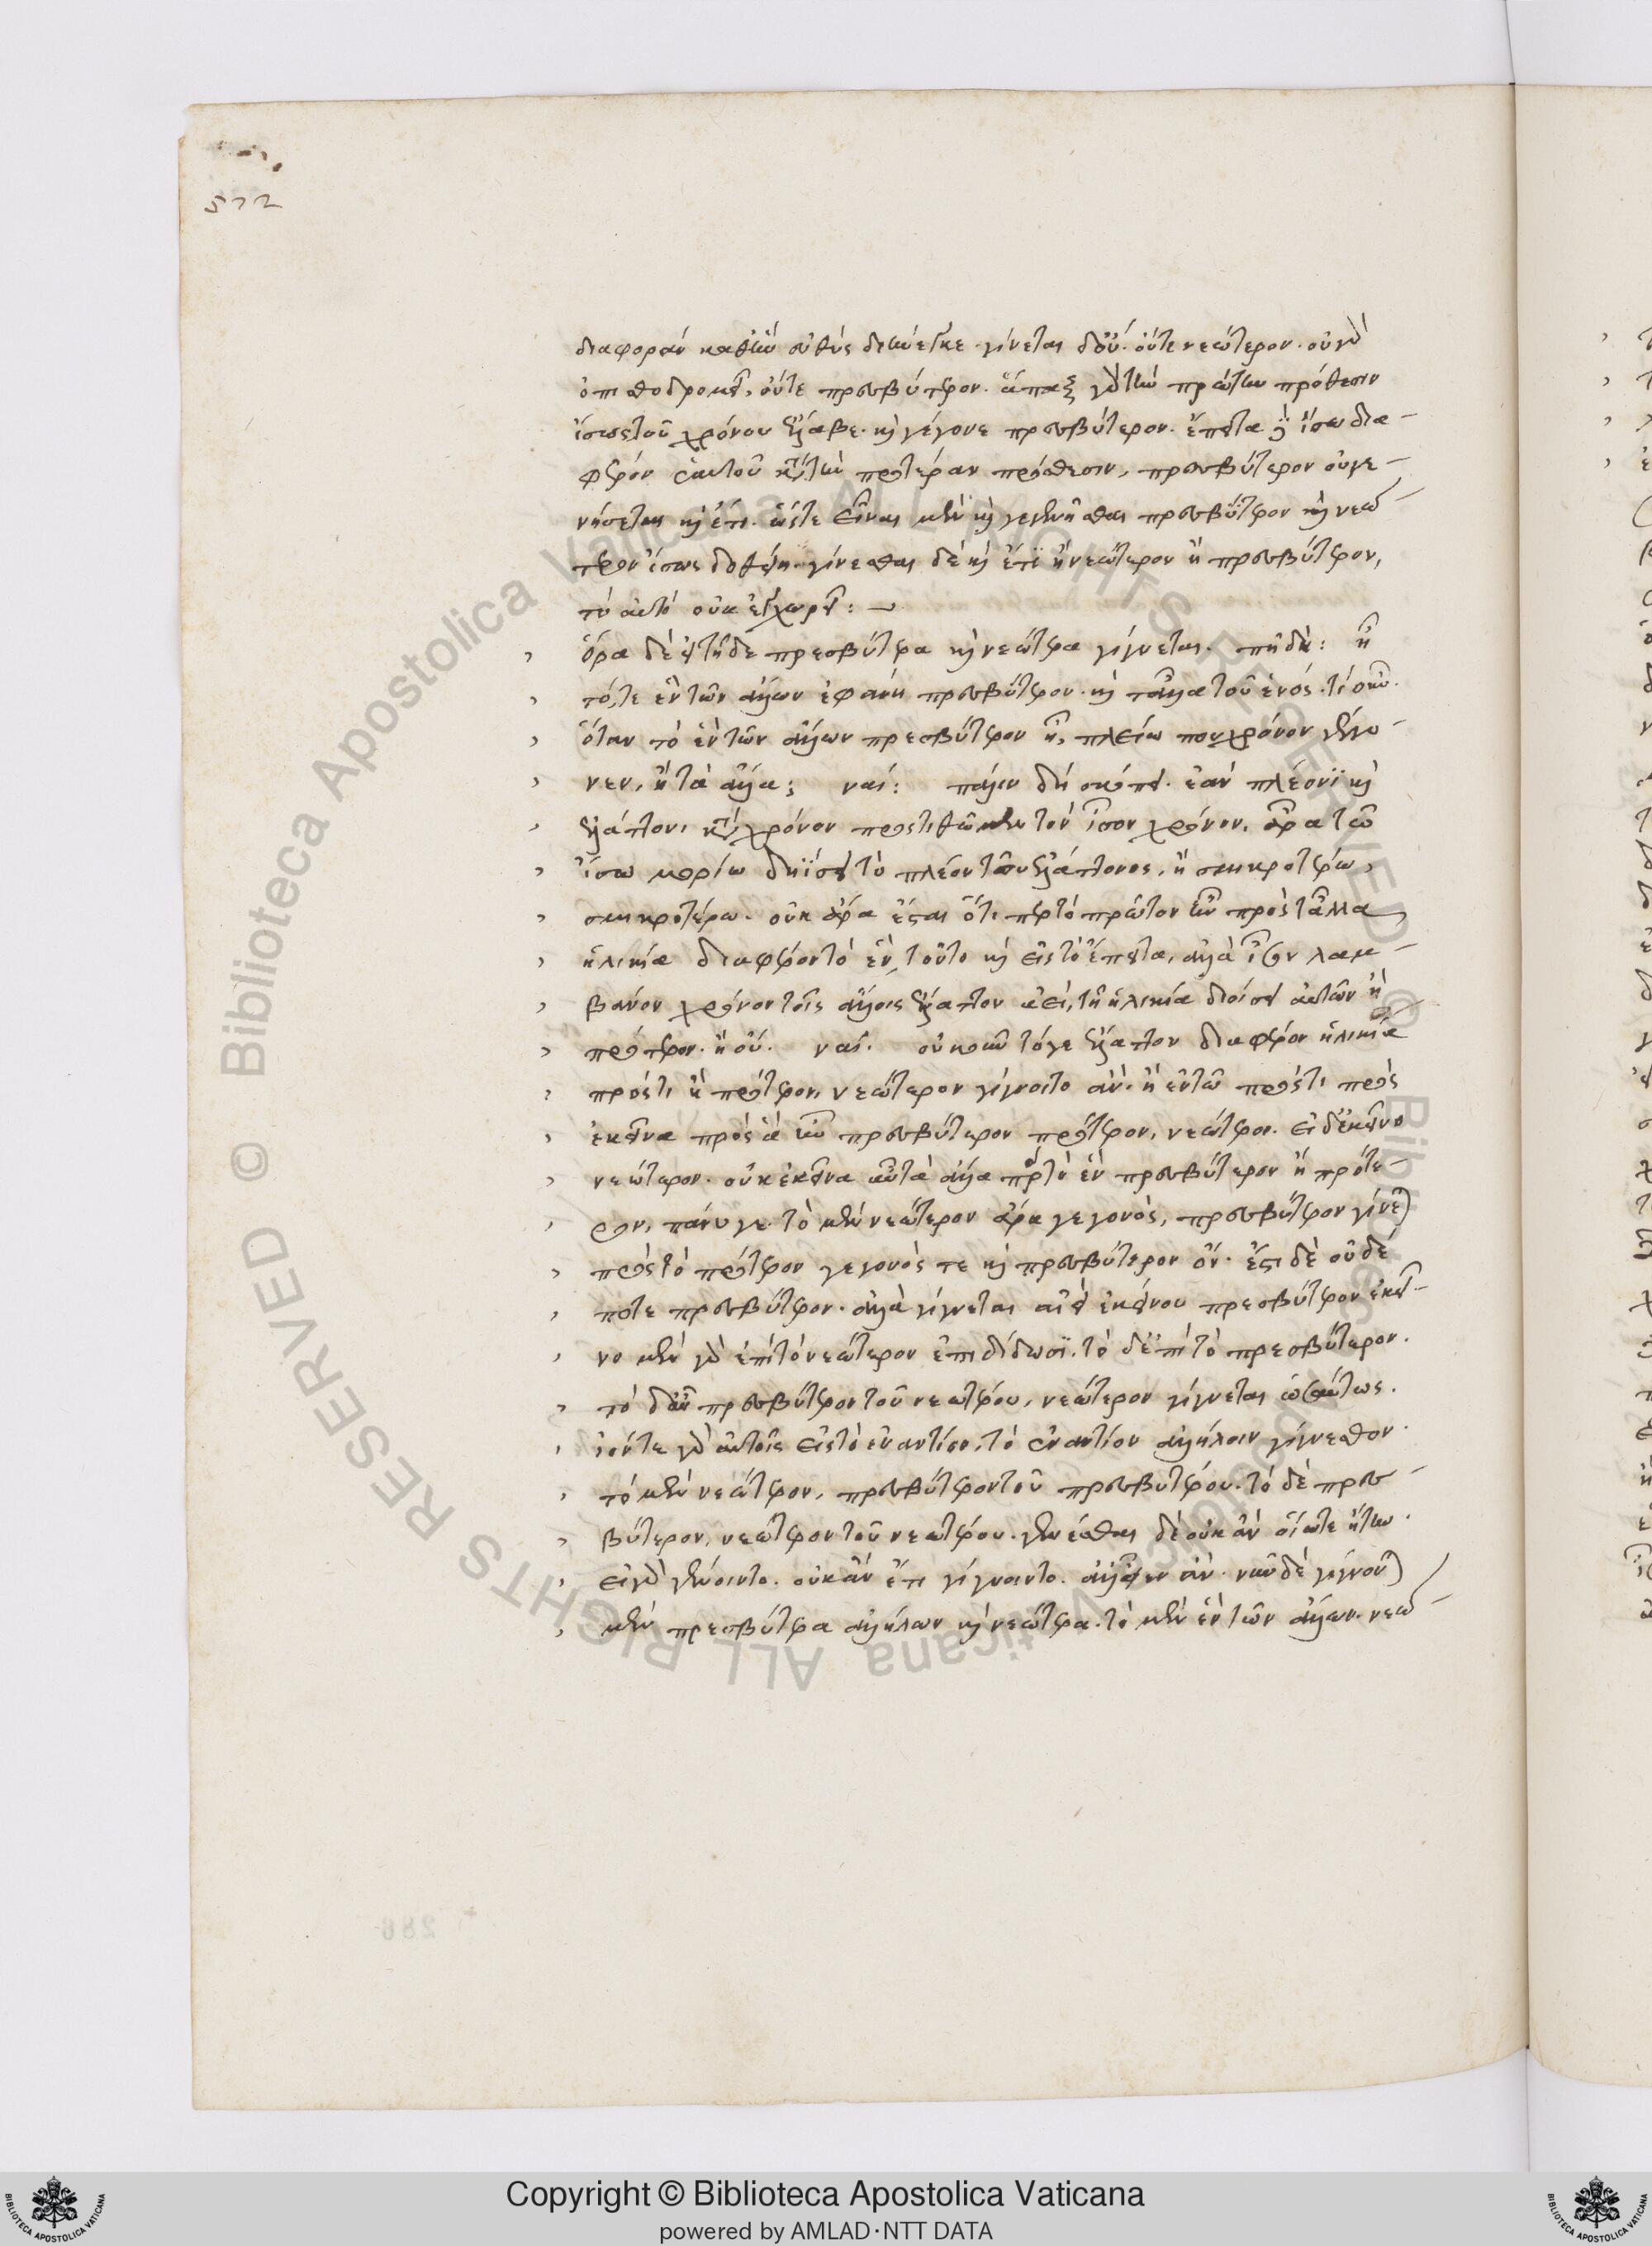 572
διαφοράν καθ' ἣν εὐθὺς διήνεγκε. γίνεται δ' οὐ. οὔτε νεώτερον. οὐ γὰρ
ὀπισθοδρομεῖ, οὔτε πρεσβύτερον. ἅπαξ γὰρ τὴν πρώτην πρόθεσιν
ἴσως τοῦ χρόνου ἔλαβε. καὶ γέγονε πρεσβύτερον. ἔπειτα ἴσω δια-
φέρον ἑαυτοῦ κατὰ τὴν προτέραν πρόθεσιν, πρεσβύτερον οὐ γε-
νήσεται καὶ ἔτι. ὥστε εἶναι μὲν καὶ γεγενῆσθαι πρεσβύτερον καὶ νεώ-
τερον ἴσως δοθείη. γίνεσθαι δὲ καὶ ἔτι ἢ νεώτερον ἢ πρεσβύτερον,
τὸ αὐτὸ οὐκ ἐγχωρεῖ:
ὅρα δὲ εἰ τῇδε πρεσβύτερα καὶ νεώτερα γίγνεται. πῆ δή: ἧ
τό, τε ἓν τῶν ἄλλων ἐφάνη πρεσβύτερον. καὶ τἄλλα τοῦ ἑνός. τί οὖν.
ὅταν τὸ ἓν τῶν ἄλλων πρεσβύτερον ᾖ, πλείω που χρόνον γέγο-
νεν, ἢ τὰ ἄλλα; ναί: πάλιν δὴ σκόπει. ἐὰν πλέονι καὶ
ἐλάττονι χρόνον προστιθῶμεν τὸν ἴσον χρόνον, ἆρα τῶ
ἴσω μορίω διοίσει τὸ πλέον τοῦ ἐλάττονος, ἢ σμικροτέρω,
σμικροτέρω. οὐκ ἄρα ἔσται ὅτι περ τὸ πρῶτον ἦν πρὸς τἆλλα
ἡλικία διαφέρον τὸ ἓν, τοῦτο καὶ εἰς τὸ ἔπειτα, ἀλλὰ ἴσον λαμ-
βάνον χρόνον τοῖς ἄλλοις ἔλαττον ἀεί, τῆ ἡλικία διοίσει αὐτῶν ἢ
πρότερον. ἢ οὔ. ναί. οὐκοῦν τό γε ἔλαττον διαφέρον ἡλικία
πρός τι ἢ πρότερον, νεώτερον γίγνοιτο ἂν. ἢ ἐν τῶ πρόστι πρὸς
ἐκεῖνα πρὸς ἃ ἦν πρεσβύτερον πρότερον, νεώτερον. εἰ δὲ ἐκεῖνο
νεώτερον. οὐκ ἐκεῖνα αὖ τὰ ἄλλα πρὸς τὸ ἓν πρεσβύτερον ἢ πρότε-
ρον, πάνυ γε. τὸ μὲν νεώτερον ἄρα γεγονὸς, πρεσβύτερον γίνεται
πρὸς τὸ πρότερον γεγονός τε καὶ πρεσβύτερον ὄν. ἔστι δὲ οὐδέ
ποτε πρεσβύτερον. ἀλλὰ γίγνεται αἰεὶ ἐκείνου πρεσβύτερον ἐκεῖ-
νο μὲν γὰρ ἐπὶ τὸ νεώτερον ἐπιδίδωσι. τὸ δ' ἐπὶ τὸ πρεσβύτερον.
τὸ δ' αὖ πρεσβύτερον τοῦ νεωτέρου, νεώτερον γίγνεται ὡσαύτως.
ἰόντε γὰρ αὐτοῖς εἰς τὸ ἐναντίον, τὸ ἐναντίον ἀλλήλοιν γίγνεσθον.
τὸ μὲν νεώτερον, πρεσβύτερον τοῦ πρεσβυτέρου. τὸ δὲ πρεσ-
βύτερον, νεώτερον τοῦ νεωτέρου. γενέσθαι δὲ οὐκ ἂν οἵωτε ἤτην.
εἰ γὰρ γένοιντο. οὐκ ἂν ἔτι γίγνοιντο. ἀλλ' εἶεν ἄν. νῦν δὲ γίγνονται
μὲν πρεσβύτερα ἀλλήλων καὶ νεώτερα. τὸ μὲν ἓν τῶν ἄλλων. νεώ-
Copyright © Biblioteca Apostolica Vaticana
powered by AMLAD·NTT DATA